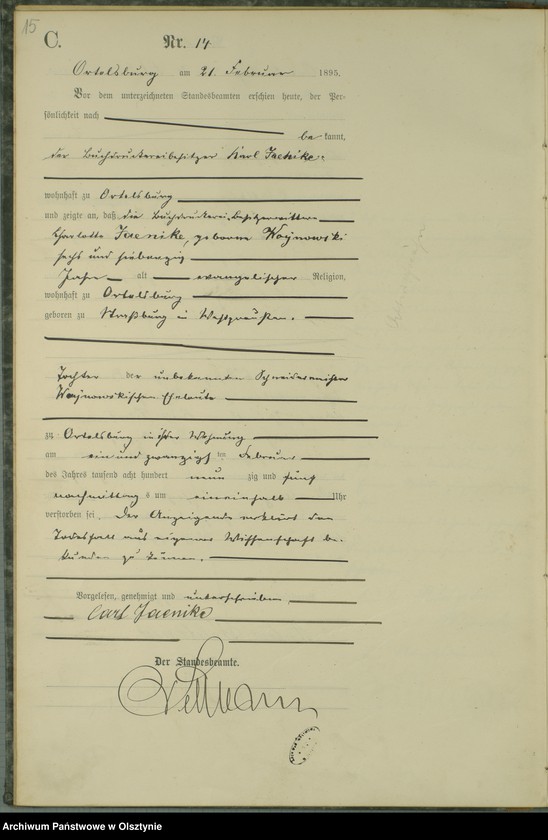 15
C.
Nr. 14
Ortelsburg am 21. Februar 1895.
Vor dem unterzeichneten Standesbeamten erschien heute, der Per-
sönlichkeit nach
be kannt,
der Buchdruckereibesitzer Karl Jaenike
wohnhaft zu Ortelsburg
und zeigte an, daß die Buchdruckerei-Besitzerwittwe
Charlotte Jaenike, geborene Woynowski
sechs und siebenzig
Jahre alt evangelischer Religion,
wohnhaft zu Ortelsburg
geboren zu Straßburg in Westpreußen.
Tochter der unbekannten Schneidermeister
Woynowskischen Eheleute
zu Ortelsburg in ihrer Wohnung
am ein und zwanzigsten Februar
des Jahres tausend acht hundert neun zig und fünf
nachmittags um eineinhalb Uhr
verstorben sei. Der Anzeigende erklärt den
Todesfall aus eigener Wissenschaft be-
kunden zu können.
Vorgelesen, genehmigt und unterschrieben
Carl Jaenike
Der Standesbeamte.
Archiwum Państwowe w Olsztynie